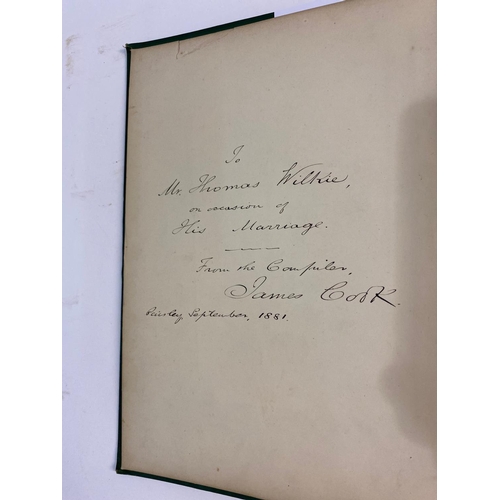 To
Mr. Thomas Wilkie,
on occasion of
His Marriage.
From the Compiler,
James Cook.
Paisley, September, 1881.